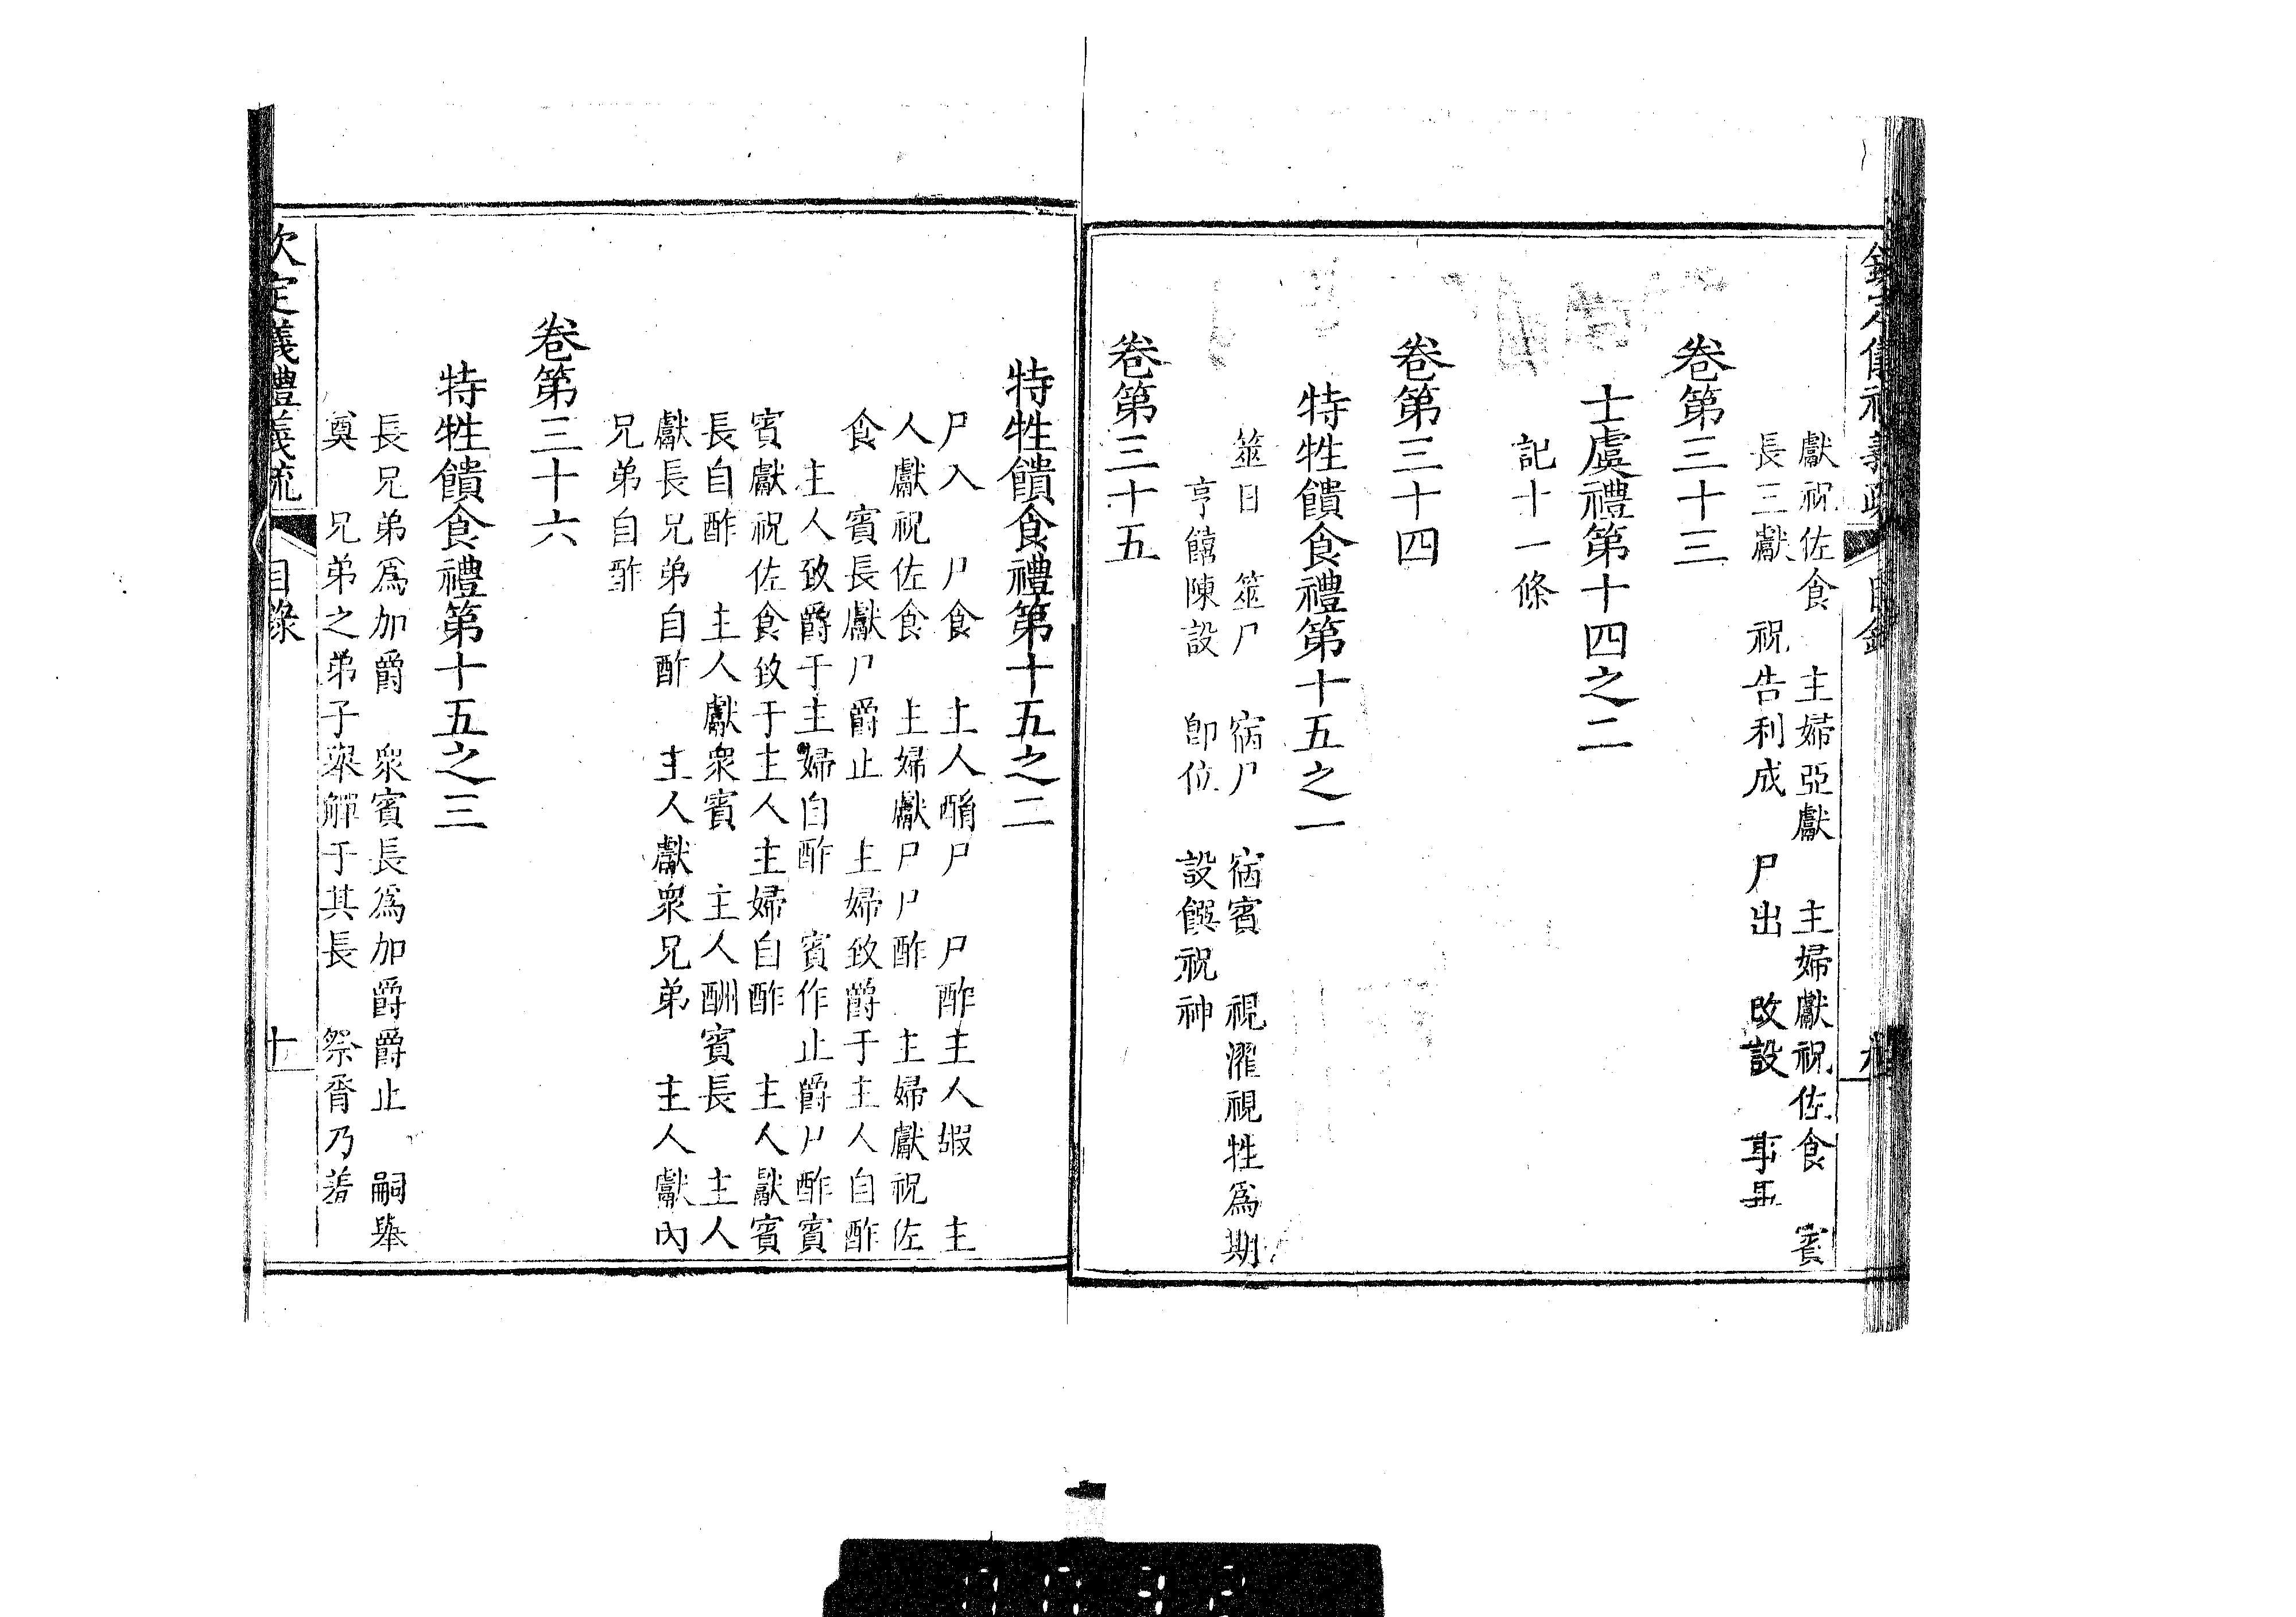 獻祝佐食　主婦亞獻　主婦獻祝佐食　賓
長三獻　祝告利成　尸出　改設　事畢
卷第三十三
士虞禮第十四之二
記十一條
卷第三十四
特牲饋食禮第十五之一
筮日　筮尸　宿尸　宿賓　視濯視牲爲期
亨饎陳設　卽位　設饌祝神
卷第三十五
特牲饋食禮第十五之二
尸入　尸食　主人酳尸　尸酢主人嘏　主
人獻祝佐食　主婦獻尸尸酢　主婦獻祝佐
食　賓長獻尸爵止　主婦致爵于主人自酢
主人致爵于主婦自酢　賓作止爵尸酢賓
賓獻祝佐食致于主人主婦自酢　主人獻賓
長自酢　主人獻衆賓　主人酬賓長　主人
獻長兄弟自酢　主人獻衆兄弟　主人獻內
兄弟自酢
卷第三十六
特牲饋食禮第十五之三
長兄弟爲加爵　衆賓長爲加爵爵止　嗣舉
奠　兄弟之弟子舉觶于其長　祭胥乃羞
欽定義禮義疏　目錄　十